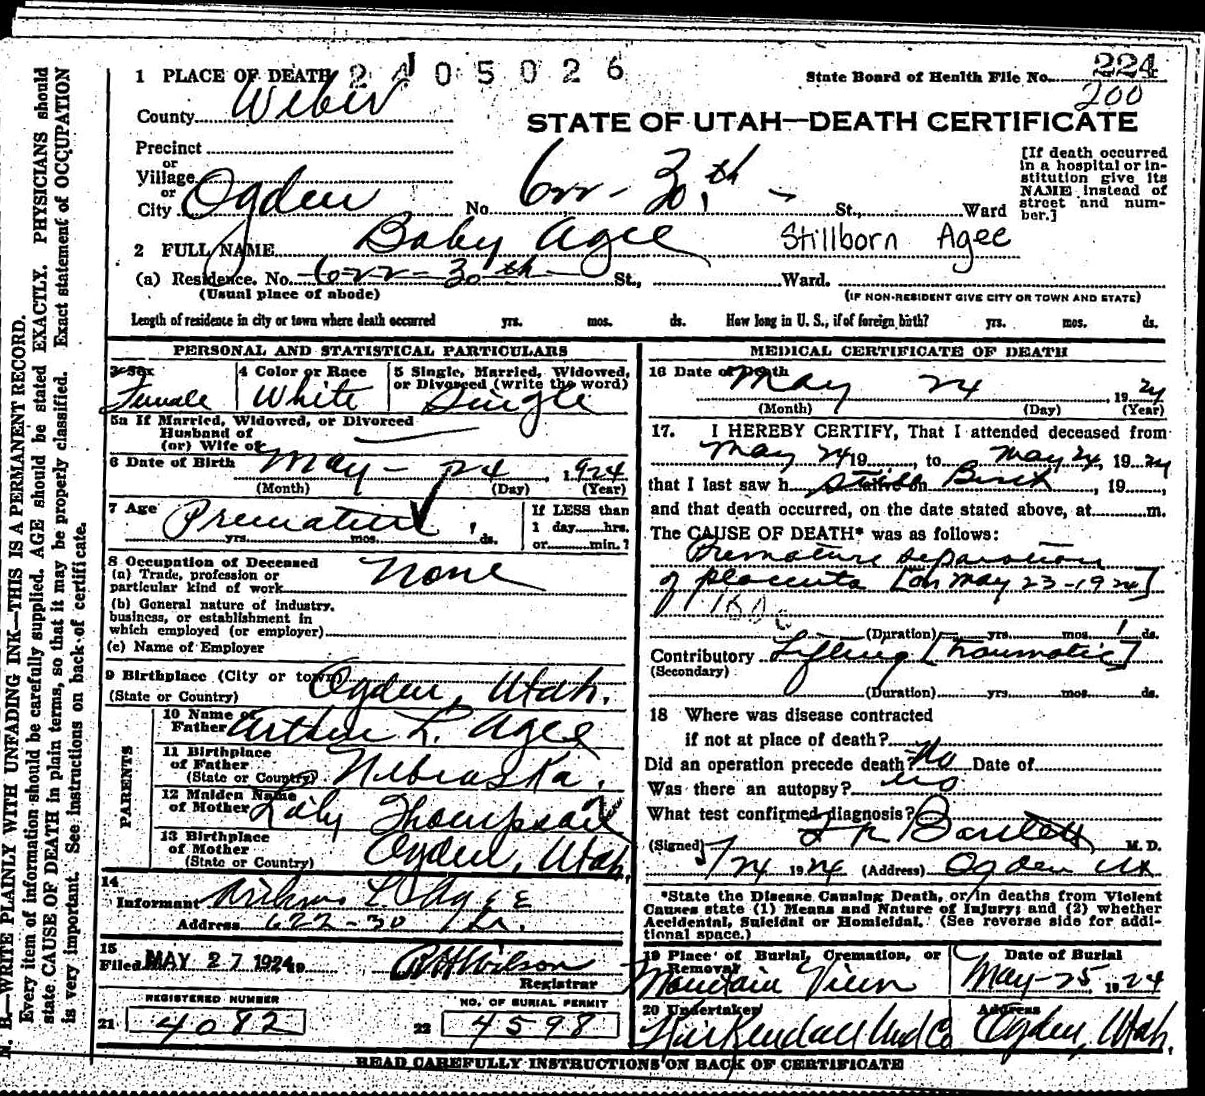 1 PLACE OF DEATH 2405026
State Board of Health File No. 224
200
County Weber
STATE OF UTAH—DEATH CERTIFICATE
Precinct
or
Village
or
City Ogden No. 622 - 30th St., Ward
[If death occurred
in a hospital or in-
stitution give its
NAME instead of
street and num-
ber.]
2 FULL NAME Baby Agee Stillborn Agee
(a) Residence. No. 622 - 30th St., Ward.
(Usual place of abode) (IF NON-RESIDENT GIVE CITY OR TOWN AND STATE)
Length of residence in city or town where death occurred yrs. mos. ds. How long in U. S., if of foreign birth? yrs. mos. ds.
PERSONAL AND STATISTICAL PARTICULARS
3 Sex Female
4 Color or Race White
5 Single, Married, Widowed,
or Divorced (write the word)
Single
5a If Married, Widowed, or Divorced
Husband of
(or) Wife of
6 Date of Birth May - 24 1924
(Month) (Day) (Year)
7 Age Premature
yrs. mos. ds.
If LESS than
1 day hrs.
or min.?
8 Occupation of Deceased
(a) Trade, profession or
particular kind of work None
(b) General nature of industry,
business, or establishment in
which employed (or employer)
(c) Name of Employer
9 Birthplace (City or town) Ogden, Utah.
(State or Country)
PARENTS
10 Name of
Father Arthur L. Agee
11 Birthplace
of Father
(State or Country) Nebraska.
12 Maiden Name
of Mother Lily Thompson
13 Birthplace
of Mother
(State or Country) Ogden, Utah.
14
Informant Arthur L. Agee
Address 622-30
15
Filed MAY 27 1924 R H Wilson
Registrar
REGISTERED NUMBER NO. OF BURIAL PERMIT
21 4082 22 4598
MEDICAL CERTIFICATE OF DEATH
16 Date of Death May 24 1924
(Month) (Day) (Year)
17. I HEREBY CERTIFY, That I attended deceased from
May 24 19, to May 24, 1924
that I last saw h alive on Still Birth, 19,
and that death occurred, on the date stated above, at m.
The CAUSE OF DEATH* was as follows:
Premature separation
of placenta [on May 23-1924]
(Duration) yrs. mos. 1 ds.
Contributory Lifting [traumatic]
(Secondary)
(Duration) yrs. mos. ds.
18 Where was disease contracted
if not at place of death?
Did an operation precede death? No Date of
Was there an autopsy? no
What test confirmed diagnosis?
(Signed) Bartlett M. D.
5/24 1924 (Address) Ogden Ut
*State the Disease Causing Death, or in deaths from Violent
Causes state (1) Means and Nature of Injury; and (2) whether
Accidental, Suicidal or Homicidal. (See reverse side for addi-
tional space.)
19 Place of Burial, Cremation, or
Removal
Mountain View
Date of Burial
May-25 1924
20 Undertaker
Kirkendall Und Co
Address
Ogden, Utah.
READ CAREFULLY INSTRUCTIONS ON BACK OF CERTIFICATE
N. B.—WRITE PLAINLY WITH UNFADING INK—THIS IS A PERMANENT RECORD.
Every item of information should be carefully supplied. AGE should be stated EXACTLY. PHYSICIANS should
state CAUSE OF DEATH in plain terms, so that it may be properly classified. Exact statement of OCCUPATION
is very important. See instructions on back of certificate.